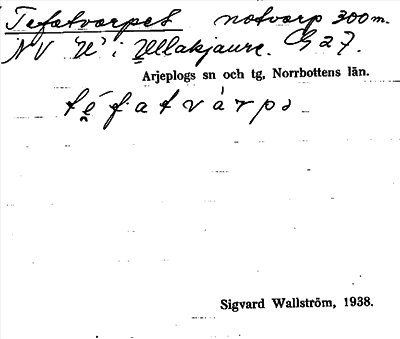 Tefatvarpet notvarp 300 m.
NV "U" i Ullakjaure. G 27.
Arjeplogs sn och tg, Norrbottens län.
t é f a t v à r p ə
Sigvard Wallström, 1938.